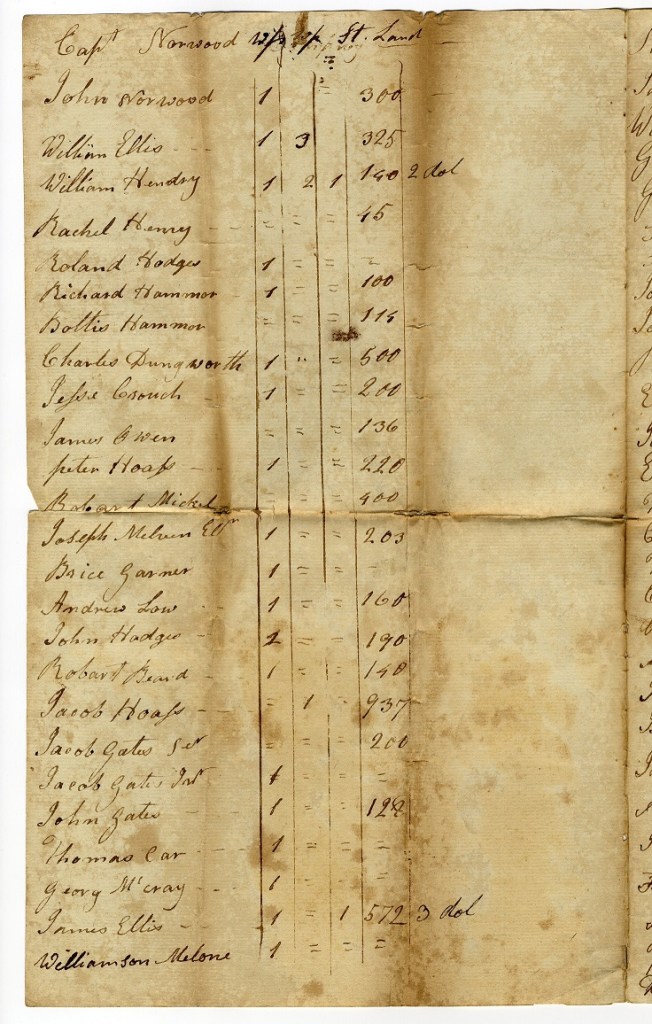 Capt Norwood Wp Bp St. Land
John Norwood 1 = 300
William Ellis - - 1 3 325
William Hendry 1 2 1 140 2 dol
Rachel Henry - = = = 45
Roland Hodges 1 = = -
Richard Hammor - 1 = = 100
Boltis Hammor = = 114
Charles Dungworth 1 " = 500
Jesse Crouch - 1 = = 200
James Owen = = = 136
peter Hoass - - 1 = = 220
Robart Mickel = = = 400
Joseph Melven 1 = = 203
Brice Garner 1 = = -
Andrew Low - 1 = = 160
John Hodges - 2 = = 190
Robart Beard - 1 = = 140
Jacob Hoass - - - 1 - 937
Jacob Gates Ser = = = 200
Jacob Gates Jur 1 = = =
John Gates - 1 = = 128
Thomas Car - - 1 = = =
Georg Mc cray - - 1 = = =
James Ellis - - 1 = 1 572 3 dol
Williamson Melone 1 = = =